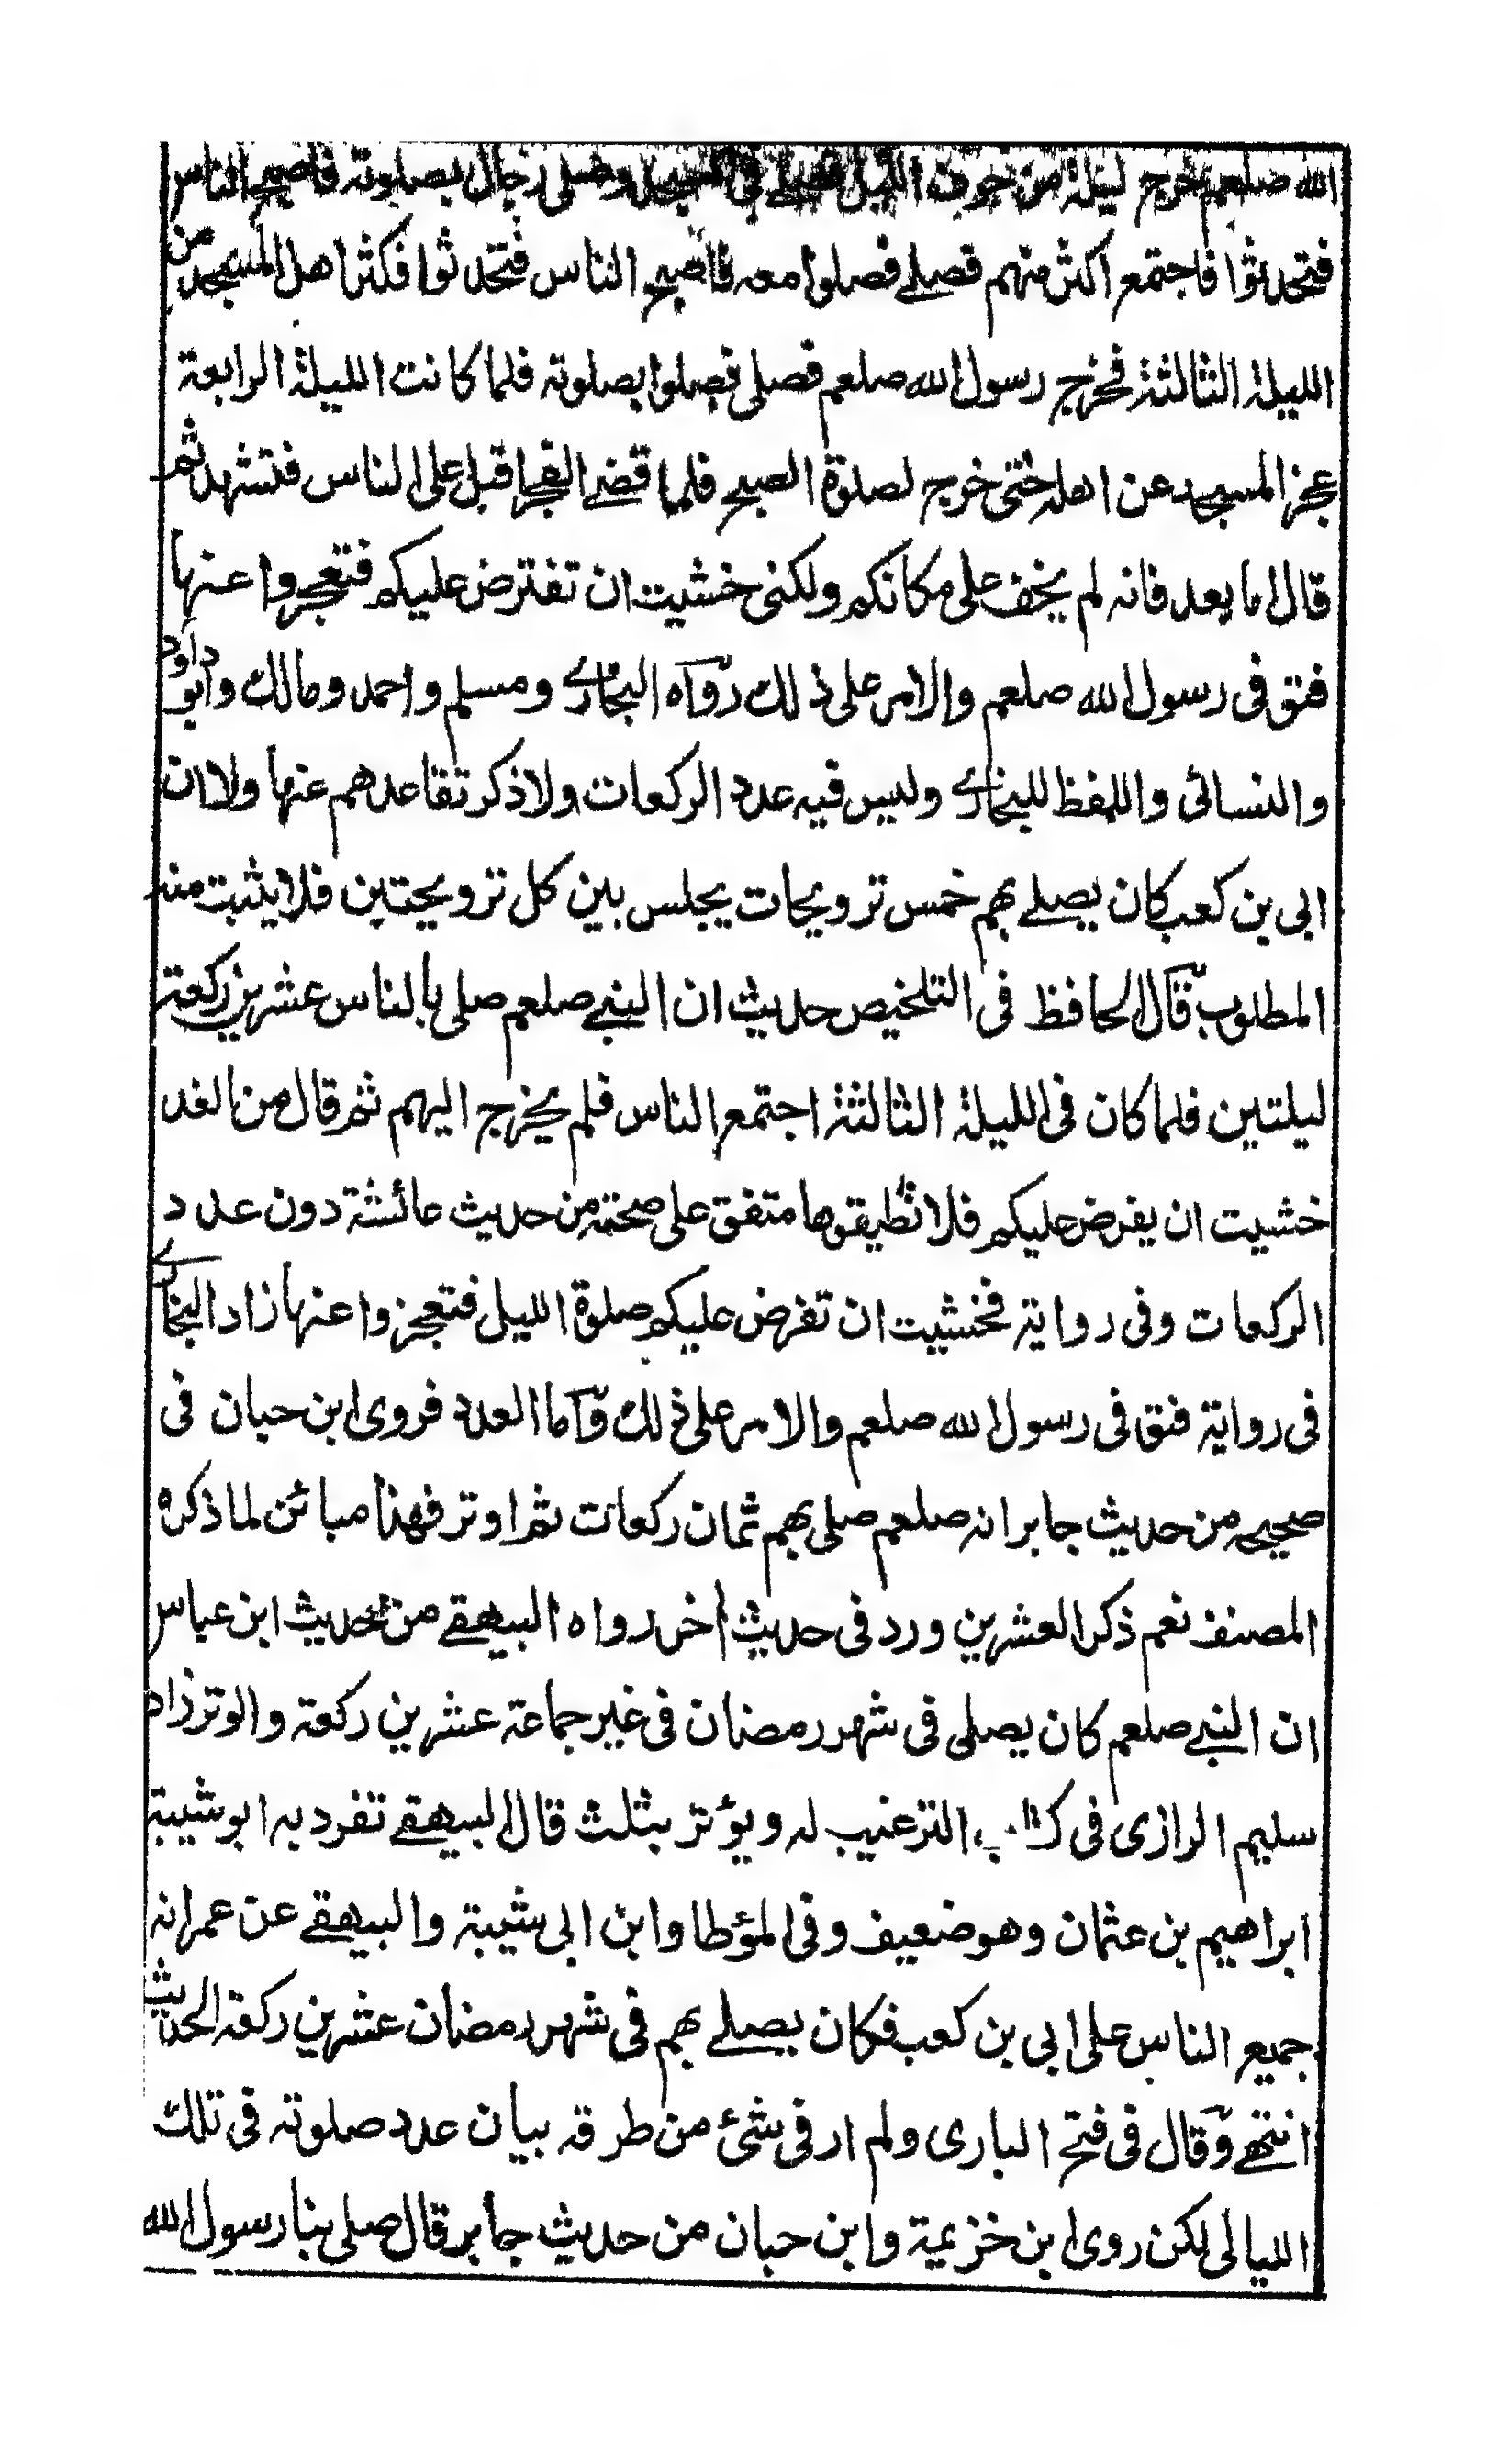 الله صلعم خرج ليلة من جوف الليل فصلى فى المسجد وصلى رجال بصلوته فاصبح الناس
فتحدثوا فاجتمع اكثر منهم فصلے فصلوا معه فاصبح الناس فتحدثوا فكثر اهل المسجد من
الليلة الثالثة فخرج رسول الله صلعم فصلى فصلوا بصلوته فلما كانت الليلة الرابعة
عجز المسجد عن اهله حتى خرج لصلوة الصبح فلما قضے الفجر اقبل على الناس فتشهد ثم
قال اما بعد فانه لم يخف على مكانكم ولكنى خشيت ان تفترض عليكم فتعجزوا عنها
فتوفى رسول الله صلعم والامر على ذلك رواه البخارے ومسلم واحمد ومالك وابو داود
والنسائى واللفظ للبخارے وليس فيه عدد الركعات ولا ذكر تقاعدهم عنها ولا ان
ابى بن كعب كان يصلے بهم خمس ترويحات يجلس بين كل ترويحتين فلا يثبت منه
المطلوب قال الحافظ فى التلخيص حديث ان النبے صلعم صلى بالناس عشرين ركعة
ليلتين فلما كان فى الليلة الثالثة اجتمع الناس فلم يخرج اليهم ثم قال من الغد
خشيت ان يفرض عليكم فلا تطيقوها متفق على صحته من حديث عائشة دون عدد
الركعات وفى رواية فخشيت ان تفرض عليكم صلوة الليل فتعجزوا عنها زاد البخارے
فى رواية فتوفى رسول الله صلعم والامر على ذلك واما العدد فروى ابن حبان فى
صحيحه من حديث جابر انه صلعم صلى بهم ثمان ركعات ثم اوتر فهذا مبائن لما ذكره
المصنف نعم ذكر العشرين ورد فى حديث اخر رواه البيهقے من حديث ابن عباس
ان النبے صلعم كان يصلى فى شهر رمضان فى غير جماعة عشرين ركعة والوتر زاد
سليم الرازى فى كتاب الترغيب له ويؤتر بثلث قال البيهقے تفرد به ابو شيبة
ابراهيم بن عثمان وهو ضعيف وفى المؤطا وابن ابى شيبة والبيهقے عن عمر انه
جميع الناس على ابى بن كعب فكان يصلے بهم فى شهر رمضان عشرين ركعة الحديث
انتهے وقال فى فتح البارى ولم ار فى شئ من طرقه بيان عدد صلوته فى تلك
الليالى لكن روى ابن خزيمة وابن حبان من حديث جابر قال صلى بنا رسول الله